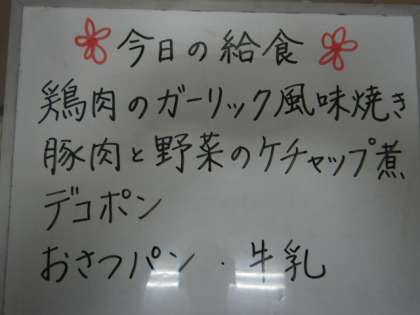 今日の給食
鶏肉のガーリック風味焼き
豚肉と野菜のケチャップ煮
デコポン
おさつパン・牛乳